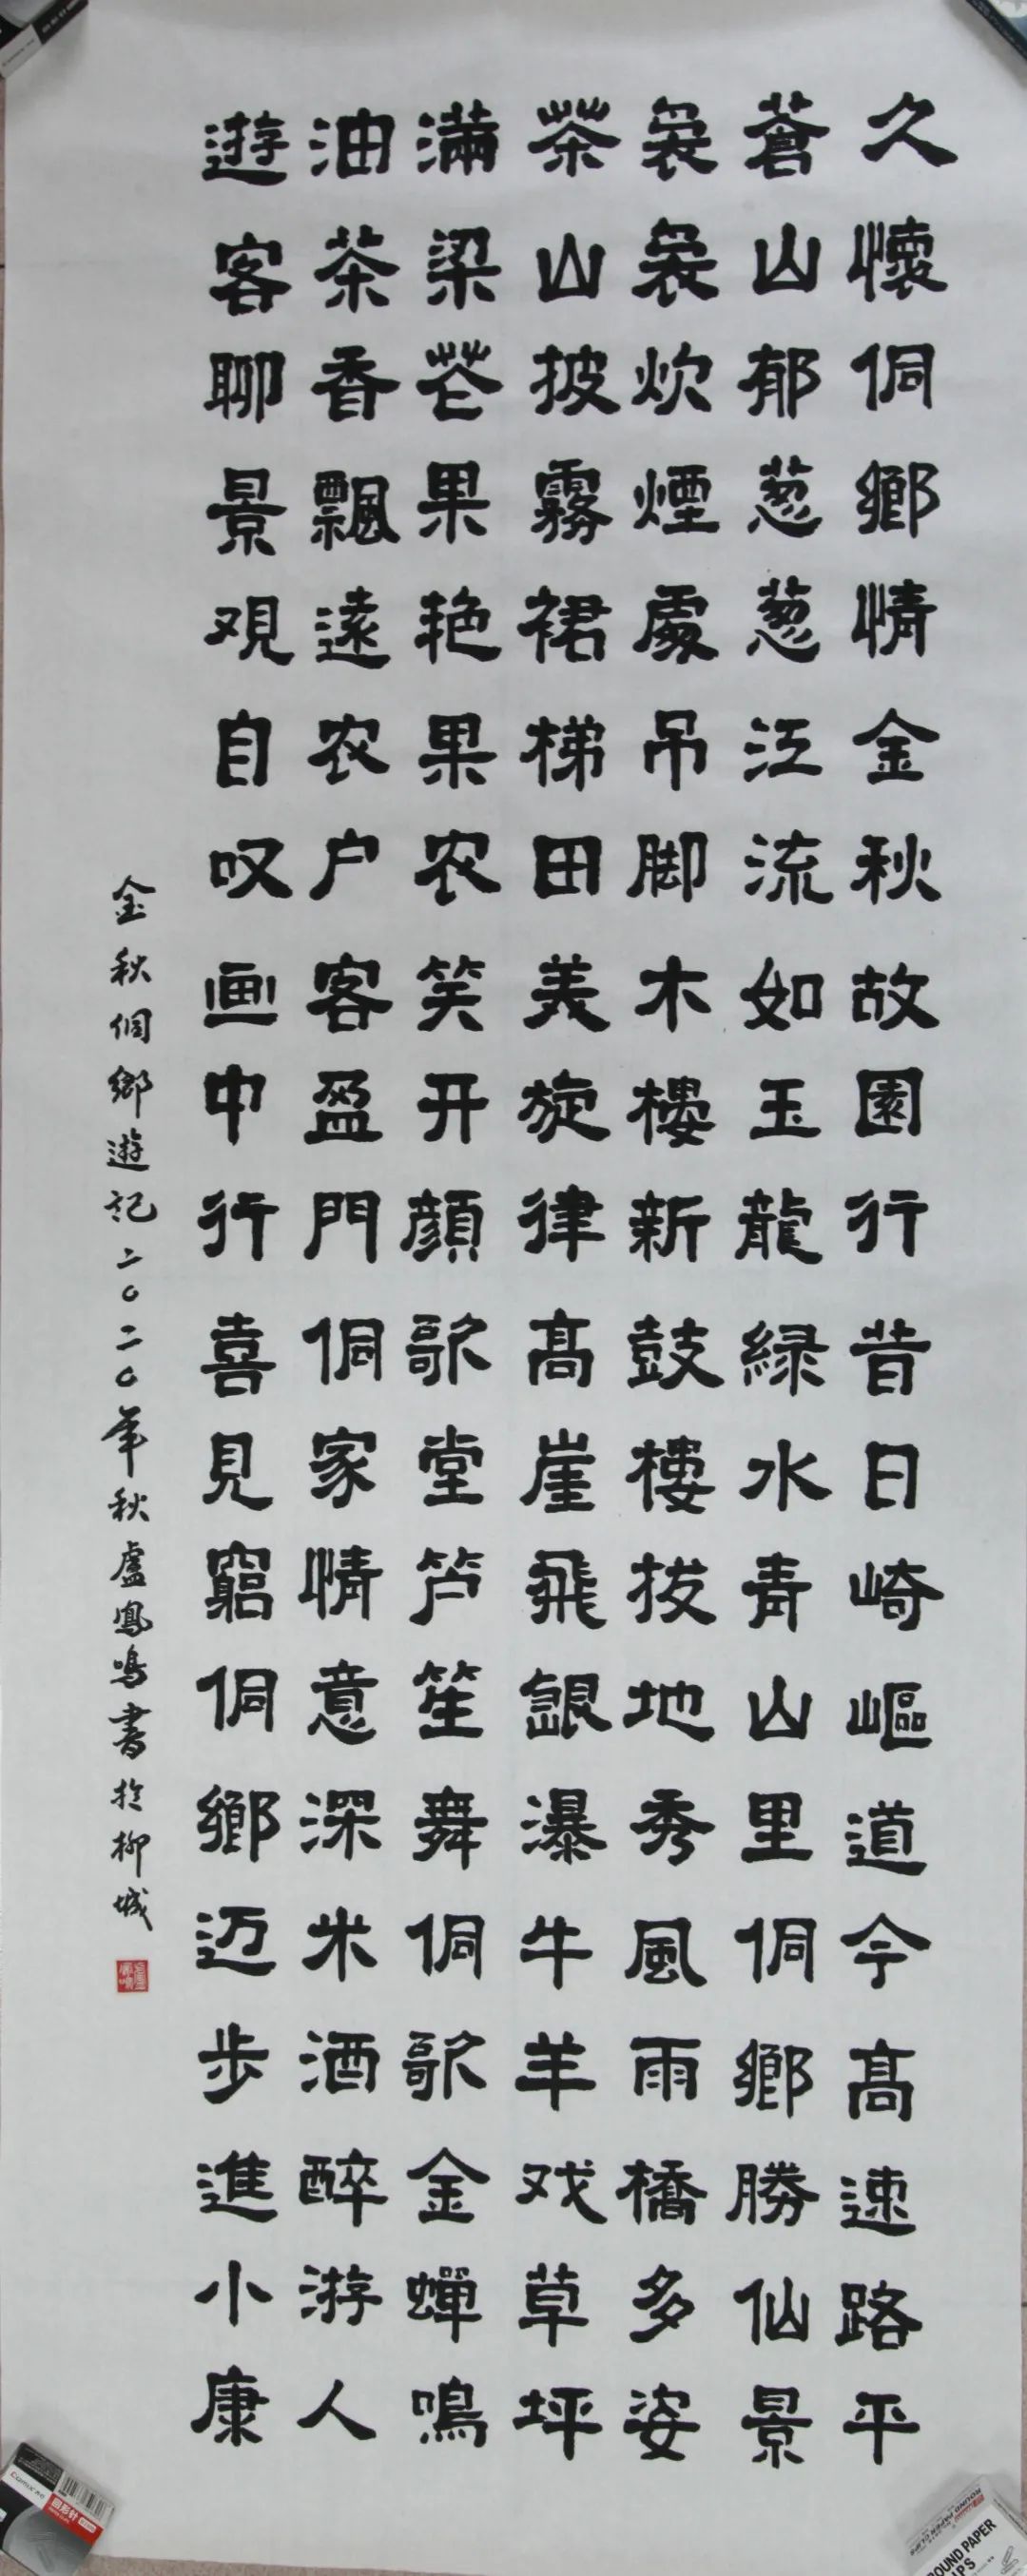 久懷侗鄉情金秋故園行昔日崎嶇道今髙速路平
蒼山郁葱葱江流如玉龍緑水青山里侗鄉勝仙景
裊裊炊煙處吊脚木樓新鼓樓拔地秀風雨橋多姿
茶山披霧裙梯田美旋律髙崖飛銀瀑牛羊戏草坪
滿梁芒果艳果农笑开顔歌堂笙芦舞侗歌金蟬鳴
油茶香飄遠农户客盈門侗家情意深米酒醉游人
遊客聊景观自叹画中行喜見窮侗鄉迈步進小康
金秋侗鄉遊記二〇二〇年秋盧鳳鳴書於柳城
Comix
回形针
ROUND PAPER